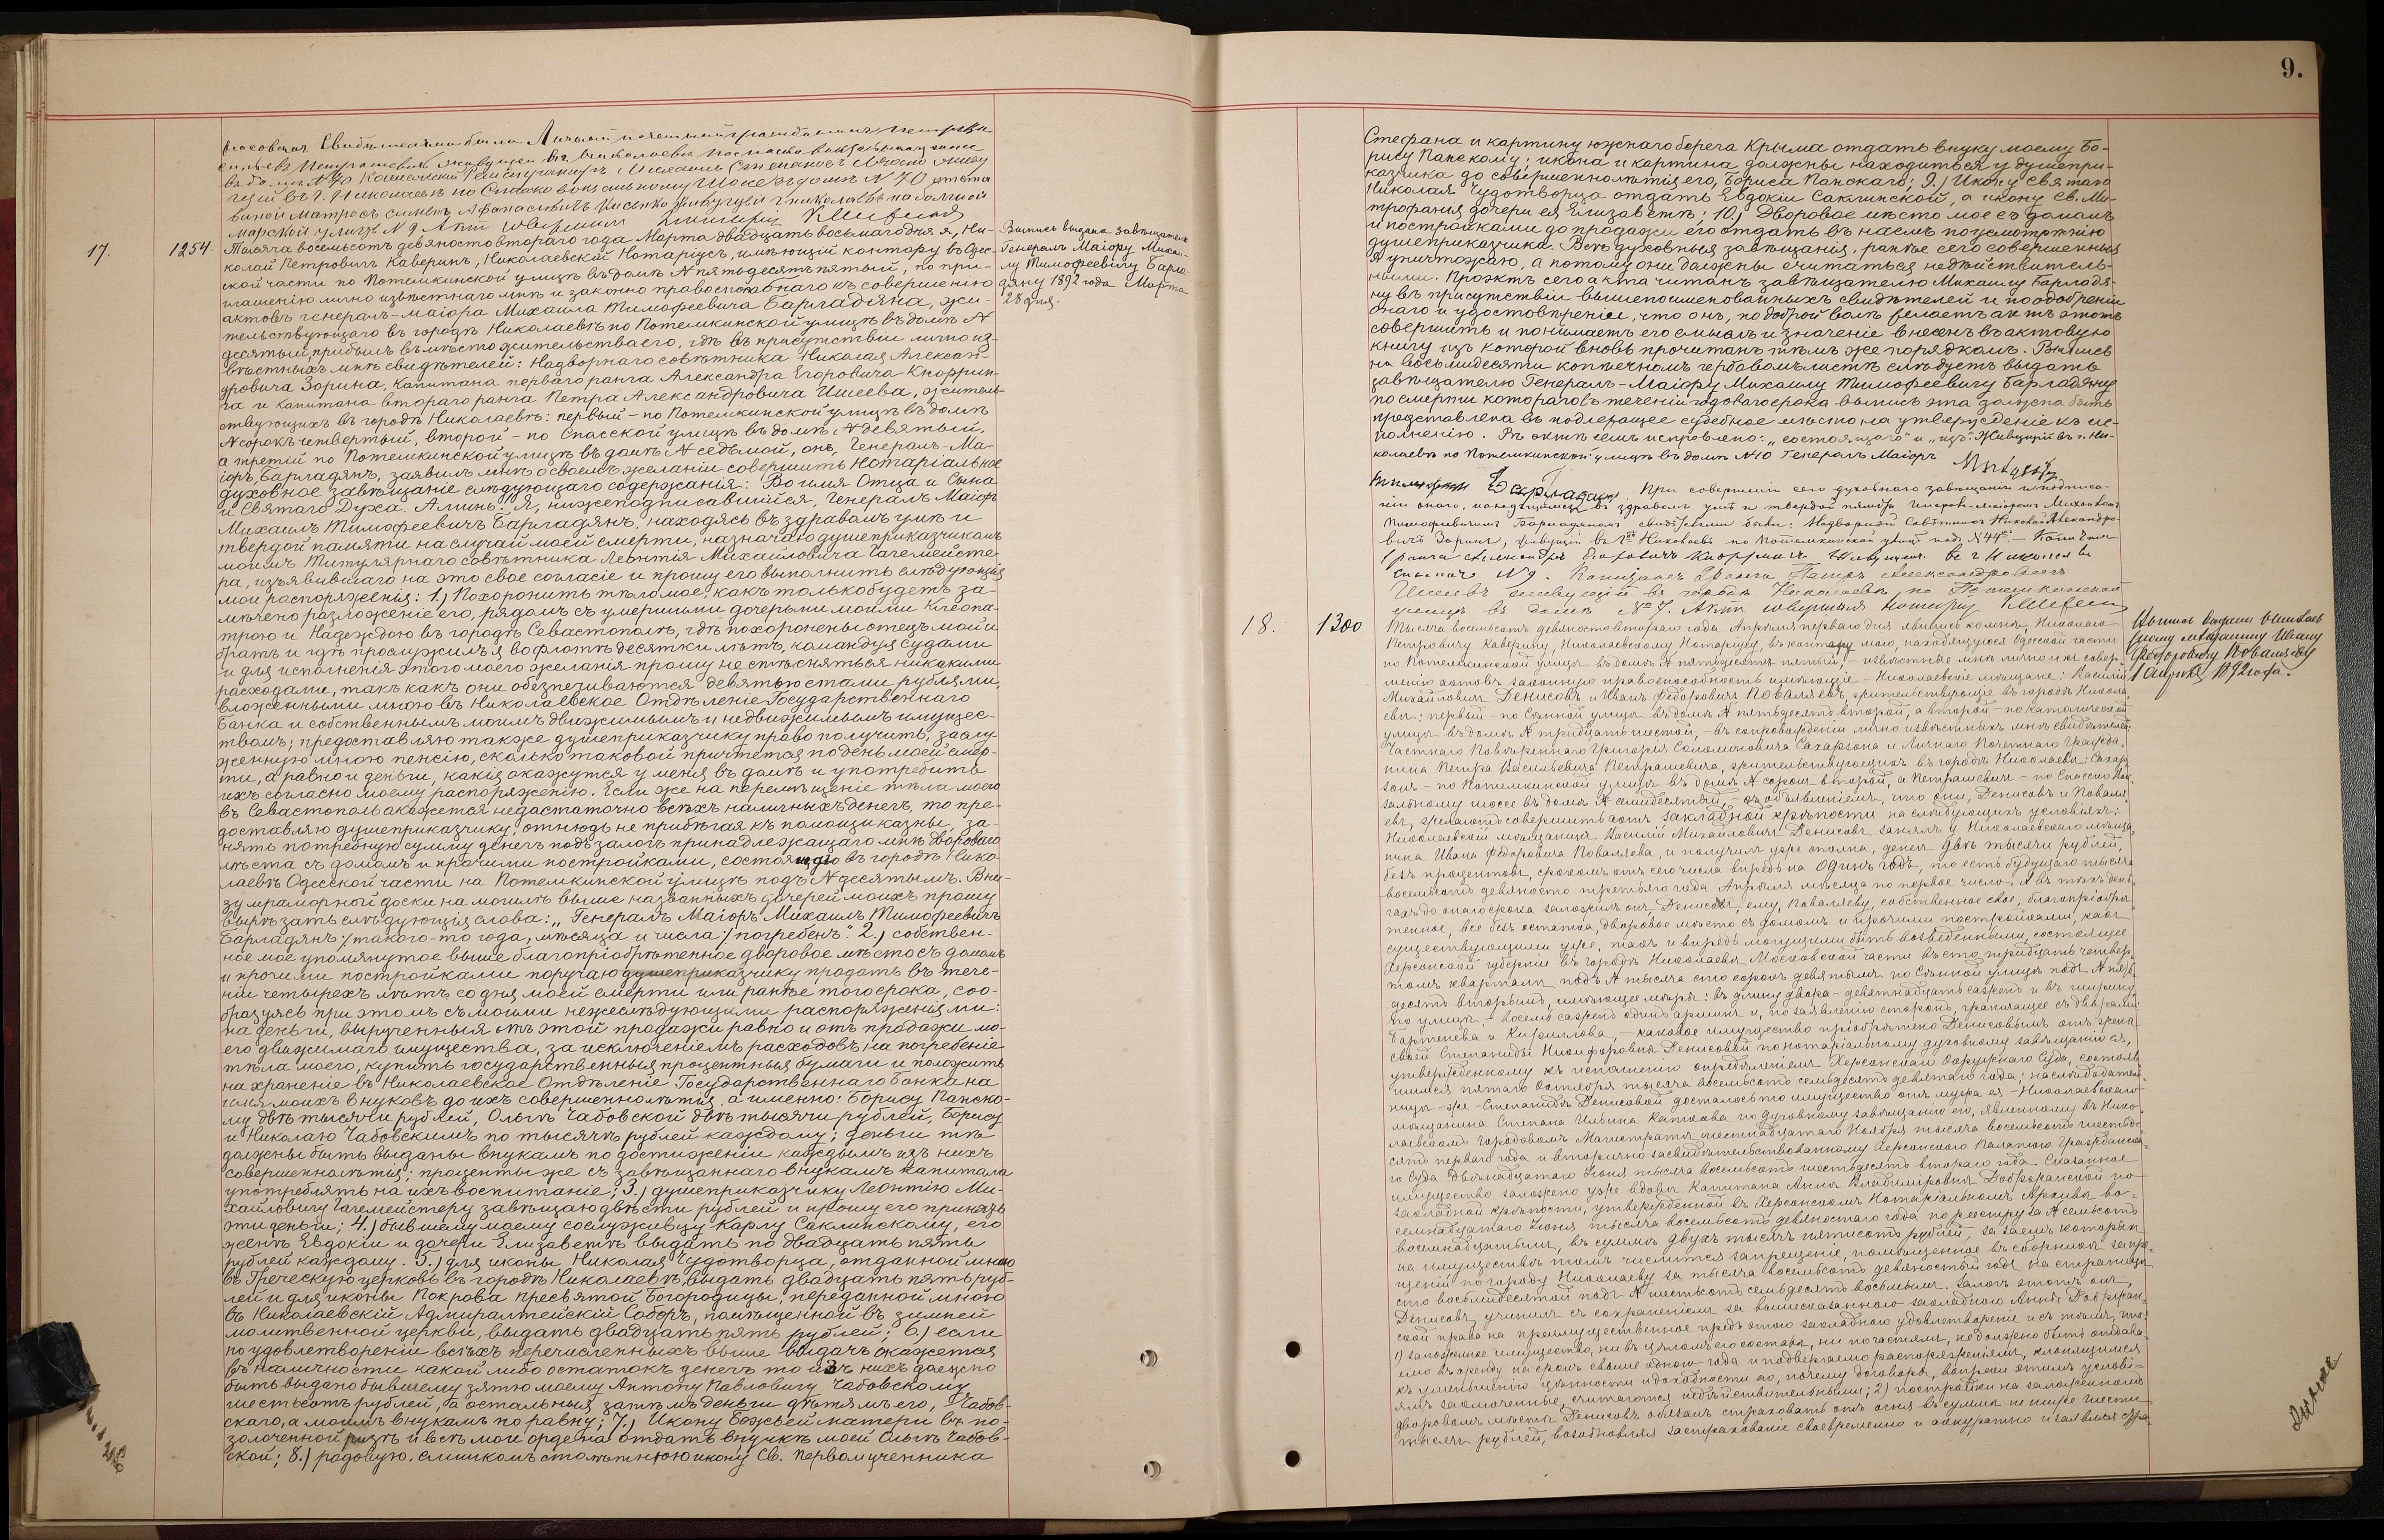 Свидетелями были Личный почетный гражданин Петр Ва-
сильевъ Петрашевичъ живущий въ Николаевѣ по Спасско вокзальному шоссе
въ домѣ № 70
въ г. Николаевѣ по Спасско вокзальному Шоссе въ домѣ № 70
Морской улицѣ № 9 Актъ совершилъ Нотаріусъ
17.
1254.
Тысяча восемьсотъ девяносто втораго года Марта двадцать восьмаго дня я, Ни-
колай Петровичъ Каверинъ, Николаевскій Нотаріусъ, имѣющій контору въ Одес-
ской части по Потемкинской улицѣ въ домѣ № пятьдесятъ пятый, по при-
глашенію лично извѣстнаго мнѣ и законно правоспособнаго къ совершенію
актовъ генералъ-маіора Михаила Тимофеевича Барладяна, жи-
тельствующаго въ городѣ Николаевѣ по Потемкинской улицѣ въ домѣ №
десятый, прибылъ въ мѣсто жительства его, гдѣ въ присутствіи лично из-
вѣстныхъ мнѣ свидѣтелей: Надворнаго совѣтника Николая Алексан-
дровича Зорина, Капитана перваго ранга Александра Егоровича Кнорринг-
га и Капитана втораго ранга Петра Александровича Ишеева, жительс-
ствующихъ въ городѣ Николаевѣ: первый - по Потемкинской улицѣ въ домѣ
№ сорокъ четвертый, второй - по Спасской улицѣ въ домѣ № девятый,
а третій по Потемкинской улицѣ въ домѣ № седьмой, онъ, Генералъ-Ма-
іоръ, Барладянъ, заявилъ мнѣ о своемъ желаніи совершить Нотаріальное
духовное завѣщаніе слѣдующаго содержанія: Во имя Отца и Сына
и Святаго Духа. Аминь. Я, нижеподписавшійся, Генералъ Маіоръ
Михаилъ Тимофеевичъ Барладянъ, находясь въ здравомъ умѣ и
твердой памяти на случай моей смерти, назначаю душеприказчикомъ
моимъ Титулярнаго совѣтника Леонтія Михайловича Чагемейсте-
ра, изъявившаго на это свое согласіе и прошу его выполнить слѣдующія
мои распоряженія: 1.) Похоронить тѣло мое, какъ только будетъ за-
мѣчено разложеніе его, рядомъ съ умершими дочерьми моими Клеопа-
трою и Надеждою въ городѣ Севастополѣ, гдѣ похоронены отецъ мой и
братъ и гдѣ прослужилъ я во флотѣ десятки лѣтъ, командуя судами
и для исполненія этого моего желанія прошу не стѣсняться никакими
расходами, такъ какъ они обезпечиваются девятьюстами рублями,
вложенными мною въ Николаевское Отдѣленіе Государственнаго
Банка и собственнымъ моимъ движимымъ и недвижимымъ имущес-
твомъ; предоставляю также душеприказчику право получить, заслу-
женную мною пенсію, сколько таковой причтется по день моей смер-
ти, а равно и деньги, какія окажутся у меня въ домѣ и употребить
ихъ согласно моему распоряженію. Если же на перемѣщеніе тѣла моего
въ Севастополь окажется недостаточно всѣхъ наличныхъ денегъ, то пре-
доставляю душеприказчику, отнюдь не прибѣгая къ помощи казны, за-
нять потребную сумму денегъ подъ залогъ принадлежащаго мнѣ двороваго
мѣста съ домомъ и прочими постройками, состоящаго въ городѣ Нико-
лаевѣ Одесской части на Потемкинской улицѣ подъ № десятымъ. Вни-
зу мраморной доски на могилѣ выше названныхъ дочерей моихъ прошу
вырѣзать слѣдующія слова: „Генералъ Маіоръ Михаилъ Тимофеевичъ
Барладянъ /такого-то года, мѣсяца и числа/ погребенъ". 2.) собствен-
ное мое упомянутое выше благопріобрѣтенное дворовое мѣсто съ домомъ
и прочими постройками поручаю душеприказчику продать въ тече-
ніи четырехъ лѣтъ со дня моей смерти или ранѣе того срока, соо-
бразуясь при этомъ съ моими нижеслѣдующими распоряженіями:
на деньги, вырученныя отъ этой продажи равно и отъ продажи мо-
его движимаго имущества, за исключеніемъ расходовъ на погребеніе
тѣла моего, купить государственныя процентныя бумаги и положить
на храненіе въ Николаевское Отдѣленіе Государственнаго Банка на
имя моихъ внуковъ до ихъ совершеннолѣтія, а именно: Борису Панско-
му двѣ тысячи рублей, Ольгѣ Чабовской двѣ тысячи рублей, Борису
и Николаю Чабовскимъ по тысячѣ рублей каждому; деньги тѣ
должны быть выданы внукамъ по достиженіи каждымъ изъ нихъ
совершеннолѣтія; проценты же съ завѣщаннаго внукамъ капитала
употреблять на ихъ воспитаніе; 3.) душеприказчику Леонтію Ми-
хайловичу Чагемейстеру завѣщаю двѣсти рублей и прошу его принять
эти деньги; 4.) бывшему моему сослуживцу Карлу Саклинскому, его
женѣ Евдокіи и дочери Елизаветѣ выдать по двадцать пять
рублей каждому. 5.) для иконы Николая Чудотворца, отданной мною
въ Греческую церковь въ городѣ Николаевѣ, выдать двадцать пять руб-
лей и для иконы Покрова Пресвятой Богородицы, переданной мною
въ Николаевскій Адмиралтейскій Соборъ, помѣщенной въ зимней
молитвенной церкви, выдать двадцать пять рублей; 6.) если
по удовлетвореніи всѣхъ перечисленныхъ выше выдачъ окажется
въ наличности какой либо остатокъ денегъ то изъ нихъ должно
быть выдано бывшему зятю моему Антону Павловичу Чабовскому
шестьсотъ рублей, а остальныя затѣмъ деньги дѣтямъ его, Чабов-
скаго, а моимъ внукамъ по равну; 7.) Икону Божьей матери въ по-
золоченной ризѣ и всѣ мои ордена отдать внучкѣ моей Ольгѣ Чабов-
ской; 8.) родовую, слишкомъ столѣтнюю икону Св. Первомученника
Выпись выдана завѣщателю
Генералъ Маіору Михаи-
лу Тимофеевичу Барла-
дяну 1892 года Марта
28 дня.
9.
Стефана и картину южнаго берега Крыма отдать внуку моему Бо-
рису Панскому; икона и картина должны находиться у душепри-
казчика до совершеннолѣтія его, Бориса Панскаго; 9.) Икону святаго
Николая Чудотворца отдать Евдокіи Саклинской, а икону Св. Ми-
трофанія дочери ея Елизаветѣ; 10.) Дворовое мѣсто мое съ домомъ
и постройками до продажи его отдать въ наемъ по усмотрѣнію
душеприказчика. Всѣ духовныя завѣщанія, ранѣе сего совершенныя
я уничтожаю, а потому они должны считаться недѣйствитель-
ными. Проэктъ сего акта читанъ завѣщателю Михаилу Барладя-
ну въ присутствіи вышепоименованныхъ свидѣтелей и по одобреніи
онаго и удостовѣреніи, что онъ, по доброй волѣ желаетъ актъ этотъ
совершить и понимаетъ его смыслъ и значеніе внесенъ въ актовую
книгу изъ которой вновь прочитанъ тѣмъ же порядкомъ. Выпись
на восьмидесяти копѣечномъ гербовомъ листѣ слѣдуетъ выдать
завѣщателю Генералъ-Маіору Михаилу Тимофеевичу Барладяну
по смерти котораго въ теченіи годоваго срока выпись эта должна быть
представлена въ подлежащее судебное мѣсто на утвержденіе къ ис-
полненію. Въ актѣ семъ исправлено: „состоящаго" и „изъ". Живущій въ г. Ни-
колаевѣ по Потемкинской улицѣ въ домѣ № 10 Генералъ Маіоръ
Барладянъ. При совершеніи сего духовнаго завѣщанія и подписа-
ніи онаго, находящимся въ здравомъ умѣ и твердой памяти Генералъ-Маіоромъ Михаиломъ
Тимофеевичемъ Барладяномъ свидѣтелями были: Надворный Совѣтникъ Николай Александро-
вичъ Зоринъ, живущій въ г. Николаевѣ по Потемкинской улицѣ подъ № 44. Капитанъ
1 ранга Александръ Егоровичъ Кноррингъ живущій въ г. Николаевѣ
№ 9. Капитанъ 2 ранга Петръ Александровичъ
Ишеевъ живущій въ городѣ Николаевѣ, по Потемкинской
улицѣ въ домѣ № 7. Актъ совершилъ Нотаріусъ
18.
1300
Тысяча восемьсотъ девяносто втораго года Апрѣля перваго дня явились ко мнѣ, Николаю
Петровичу Каверину, Николаевскому Нотаріусу, въ контору мою, находящуюся Одесской части
по Потемкинской улицѣ въ домѣ № пятьдесятъ пятый, - извѣстные мнѣ лично и къ совер-
шенію актовъ законную правоспособность имѣющіе - Николаевскіе мѣщане: Василій
Михайловичъ Денисовъ и Иванъ Федоровичъ Поваляевъ, жительствующіе въ городѣ Никола-
евѣ: первый - по Сѣнной улицѣ въ домѣ № пятьдесятъ второй, а второй - по Католической
улицѣ въ домѣ № тридцать шестой, - въ сопровожденіи лично извѣстныхъ мнѣ свидѣтелей:
Частнаго Повѣреннаго Григорія Соломоновича Сахарзона и Личнаго Почетнаго Гражда-
нина Петра Васильевича Петрашевича, жительствующихъ въ городѣ Николаевѣ: Сахар-
зонъ - по Потемкинской улицѣ въ домѣ № сорокъ второй, а Петрашевичъ - по Спасско Вок-
зальному шоссе въ домѣ № семидесятый, - съ объявленіемъ, что они, Денисовъ и Поваля-
евъ, желаютъ совершить актъ закладной крѣпости на слѣдующихъ условіяхъ:
Николаевскій мѣщанинъ Василій Михайловичъ Денисовъ занялъ у Николаевскаго мѣща-
нина Ивана Федоровича Поваляева, и получилъ уже сполна, денегъ двѣ тысячи рублей,
безъ процентовъ, срокомъ отъ сего числа впредь на одинъ годъ, то есть будущаго тысяча
восемьсотъ девяносто третьяго года Апрѣля мѣсяца по первое число. А въ тѣхъ день-
гахъ до онаго срока заложилъ онъ, Денисовъ, ему, Поваляеву, собственное свое, благопріобрѣ-
тенное, все безъ остатка, дворовое мѣсто съ домомъ и прочими постройками, какъ
существующими уже, такъ и впредь могущими быть возведенными, состоящее
Херсонской губерніи въ городѣ Николаевѣ Московской части въ сто тридцать четвер-
томъ кварталѣ подъ № тысяча сто сорокъ девятымъ по Сѣнной улицѣ подъ № пять-
десятъ вторымъ, имѣющее мѣры: въ длину двора - девятнадцать саженъ и въ ширину
по улицѣ, - восемь саженъ одинъ аршинъ и, по заявленію сторонъ, граничащее съ дворами:
Бартенева и Кириллова, - каковое имущество пріобрѣтено Денисовымъ отъ жены
своей Степаниды Никифоровны Денисовой по нотаріальному духовному завѣщанію ея,
утвержденному къ исполненію опредѣленіемъ Херсонскаго Окружнаго Суда, состояв-
шимся пятаго Октября тысяча восемьсотъ семьдесятъ девятаго года; наслѣдодатель-
ницѣ-же - Степанидѣ Денисовой досталось то имущество отъ мужа ея - Николаевскаго
мѣщанина Степана Ильина Каткова по духовному завѣщанію его, явленному въ Нико-
лаевскомъ Городовомъ Магистратѣ шестнадцатаго Ноября тысяча восемьсотъ шестьде-
сятъ перваго года и вторично засвидѣтельствованному Херсонскою Палатою Гражданска-
го Суда двѣнадцатаго Іюня тысяча восемьсотъ шестьдесятъ втораго года. Сказанное
имущество заложено уже вдовѣ Капитана Аннѣ Владиміровнѣ Добржанской по
закладной крѣпости, утвержденной въ Херсонскомъ Нотаріальномъ Архивѣ во-
семнадцатаго Іюня тысяча восемьсотъ девяностаго года по реестру за № семьсотъ
восемнадцатымъ, въ суммѣ двухъ тысячъ пятисотъ рублей, за заемъ которыхъ
на имуществѣ томъ числится запрещеніе, помѣщенное въ сборникѣ запре-
щеній по городу Николаеву за тысяча восемьсотъ девяностый годъ на страницѣ
сто восьмидесятой подъ № шестьсотъ семьдесятъ восьмымъ. Залогъ этотъ онъ,
Денисовъ, учинилъ съ сохраненіемъ за вышесказанною закладною Анны Добржан-
ской права на преимущественное предъ этою закладною удовлетвореніе и съ тѣмъ, что:
1) заложенное имущество, ни въ цѣломъ его составѣ, ни по частямъ, не должно быть отдава-
емо въ аренду на срокъ свыше одного года и подвергаемо распоряженіямъ, клонящимся
къ уменьшенію цѣнности и доходности его, почему договоры, вопреки этимъ услові-
ямъ заключенные, считаются недѣйствительными; 2) постройки на заложенномъ
дворовомъ мѣстѣ Денисовъ обязанъ страховать отъ огня въ суммѣ не ниже шести
тысячъ рублей, возобновляя застрахованіе своевременно и аккуратно и
Выпись выдана Николаев-
скому мѣщанину Ивану
Федоровичу Поваляеву
1 Апрѣля 1892 года.